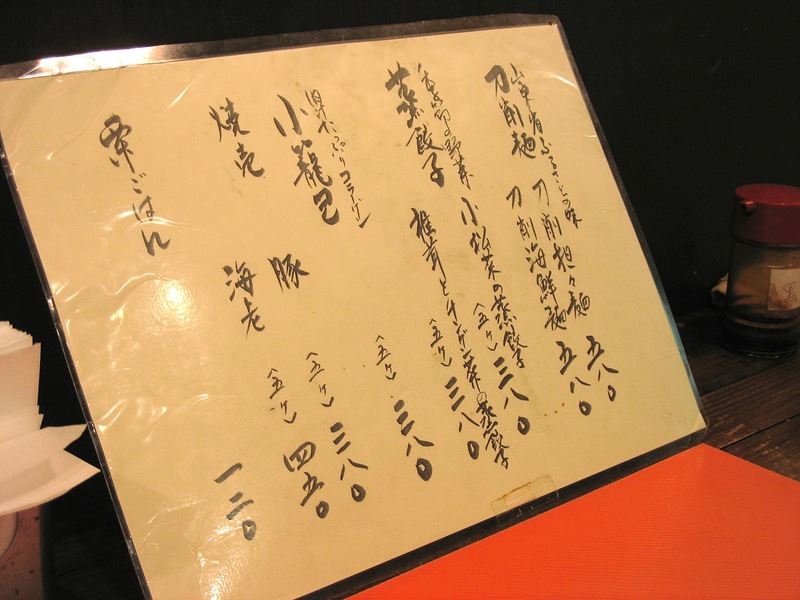 山西省ふるさとの味
刀削麺 刀削担々麺 五八〇
刀削海鮮麺 五八〇
野菜
蒸餃子 小松菜の蒸餃子〈五ケ〉三八〇
椎茸とチンゲン菜の蒸餃子〈五ケ〉三八〇
コラーゲン
小籠包〈五ケ〉三八〇
焼売 豚〈五ケ〉三八〇
海老〈五ケ〉四五〇
粟ごはん 一二〇